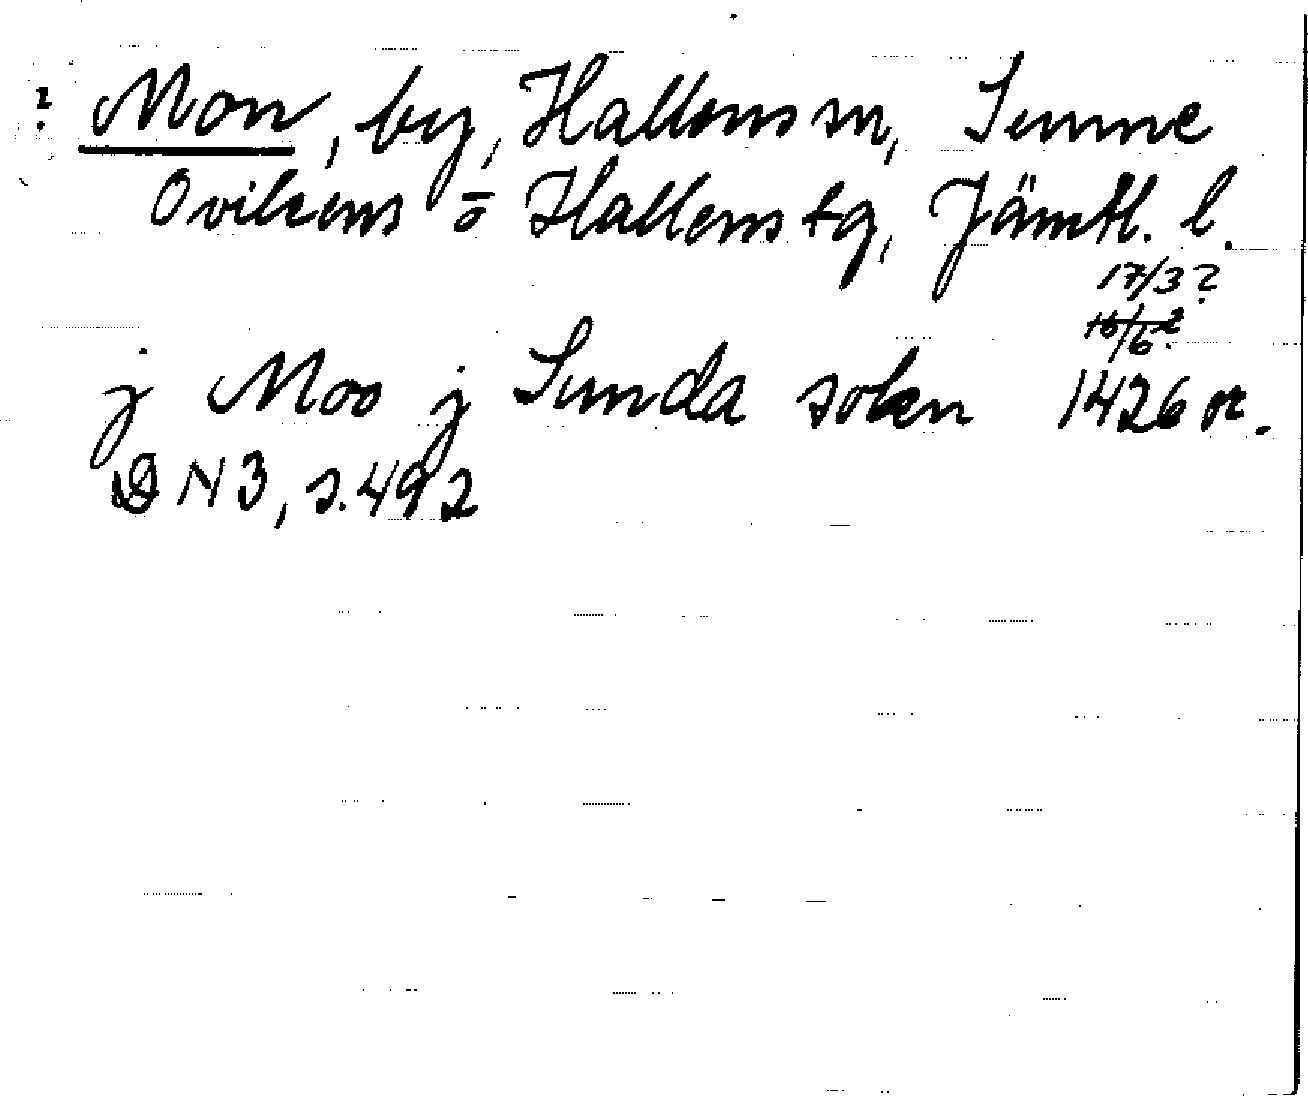 ? Mon, by, Hallens sn, Sunne
Ovikens o Hallens tg, Jämtl. l.
17/3?
16/6?
j Moo j Sunda soken 1426 or.
DN 3, s. 492